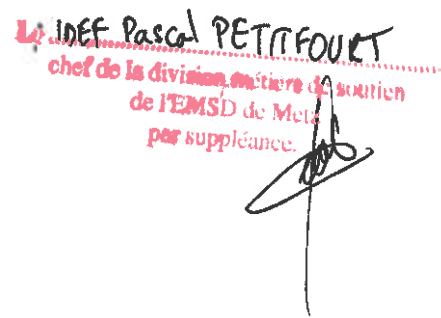 Le IDEF Pascal PETITFOURT
chef de la division métiers de soutien
de l'EMSD de Metz
par suppléance.